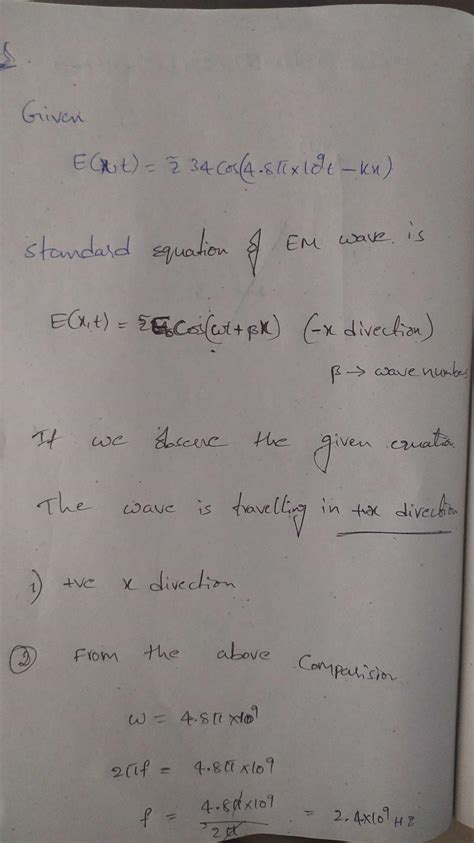 Given
E(x,t) = z̃ 34 cos(4.8π×10⁹t − kx)
standard equation of EM wave is
E(x,t) = z̃ E₀ cos(ωt + βx) (-x direction)
β → wave number
If we obscure the given equation
The wave is travelling in +x direction
1) +ve x direction
② From the above comparision
ω = 4.8π×10⁹
2πf = 4.8π×10⁹
f = 4.8π×10⁹ / 2π = 2.4×10⁹ HZ